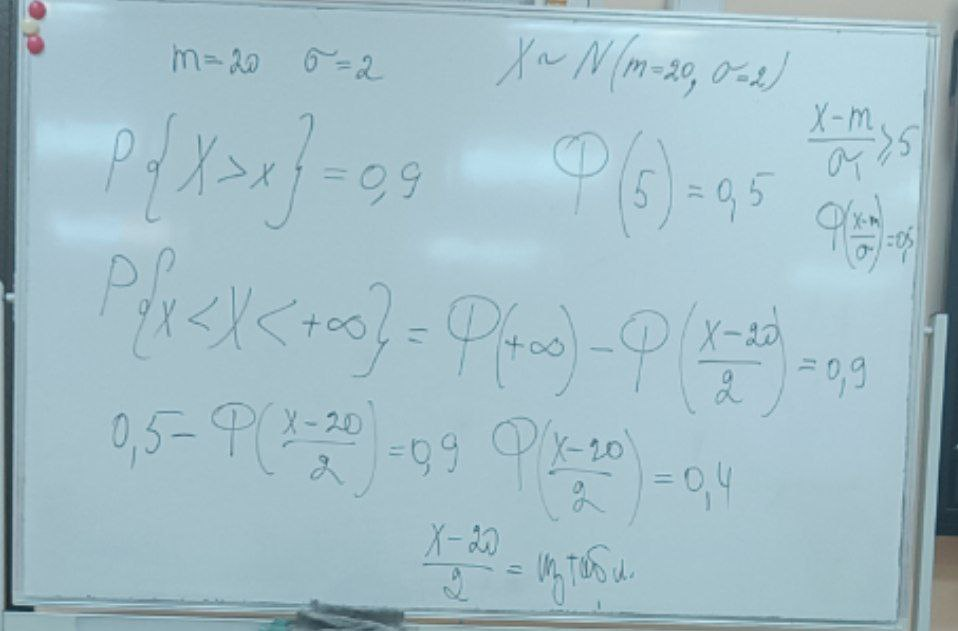 m=20 σ=2 X~N(m=20, σ=2)
P{X>x}=0,9 Φ(5)=0,5
(x-m)/σ ⩾5
Φ((x-m)/σ)=0,5
P{x<X<+∞}=Φ(+∞)-Φ((x-20)/2)=0,9
0,5-Φ((x-20)/2)=0,9 Φ((x-20)/2)=0,4
(x-20)/2 = из табл.